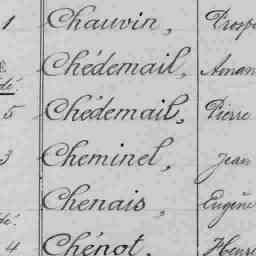 1 Chauvin, Prosp
Chédemail, Aman
5 Chédemail, Pierre
3 Cheminel, Jean
Chenais, Eugène
4 Chénot, Henri